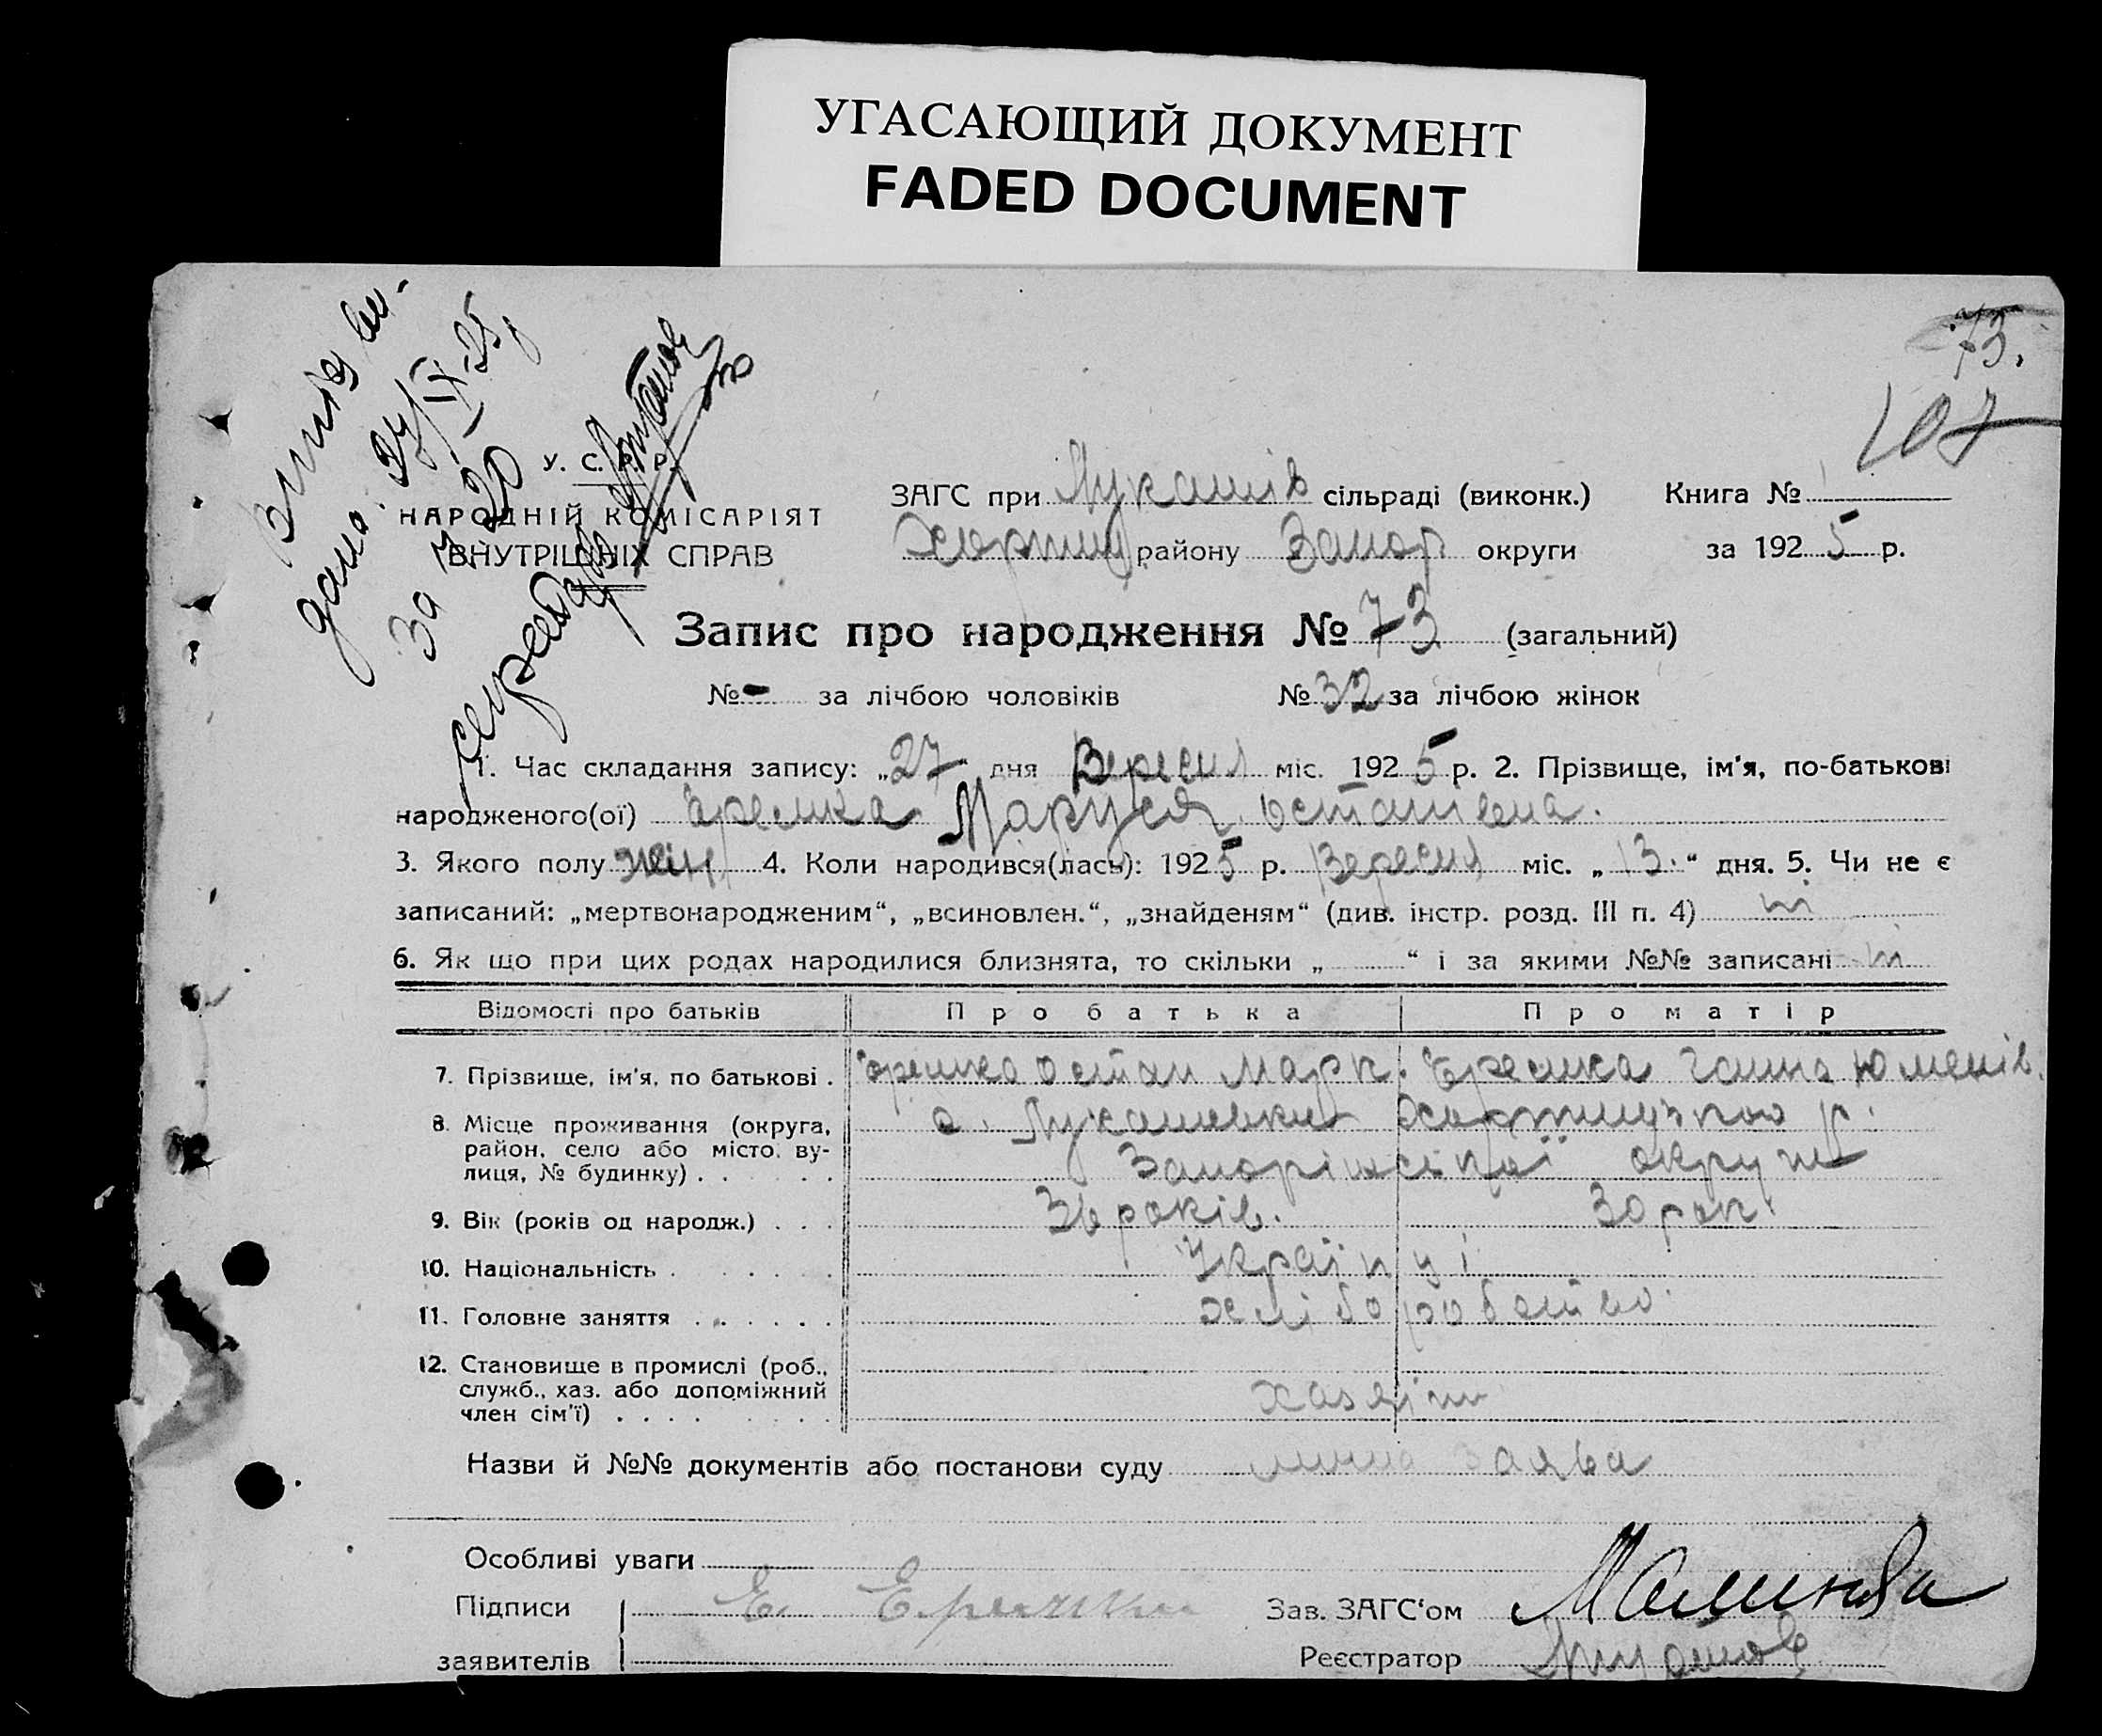 УГАСАЮЩИЙ ДОКУМЕНТ
FADED DOCUMENT
73.
107
Витяг ви-
дано 27/IX-25
За № 20
Секретарь
У. С. Р. Р.
НАРОДНІЙ КОМІСАРІЯТ
ВНУТРІШНІХ СПРАВ
ЗАГС при Лукашів сільраді (виконк.) Книга №
Хортиц району Запор округи за 192 5 р.
Запис про народження № 73 (загальний)
№ - за лічбою чоловіків № 32 за лічбою жінок
1. Час складання запису: „27" дня Вересня міс. 192 5 р. 2. Прізвище, ім'я, по-батькові
народженого(ої) Єремка Маруся Остапівна.
3. Якого полу жін. 4. Коли народився(лась): 192 5 р. Вересня міс. „13." дня. 5. Чи не є
записаний: „мертвонародженим“, „всиновлен.“, „знайденям“ (див. інстр. розд. III п. 4) ні
6. Як що при цих родах народилися близнята, то скільки „ “ і за якими №№ записані ні
Відомості про батьків Про батька Про матір
7. Прізвище, ім'я, по батькові . Єремка Остап Марк. Єремка Ганна
8. Місце проживання (округа,
район, село або місто, ву-
лиця, № будинку) . . . . . .
с. Лукашевки Хортицького р.
Запоріжської округи
9. Вік (років од народж.) . . . 36 років. 30 рок.
10. Національність . . . . . . Українці
11. Головне заняття . . . . . . хліборобство.
12. Становище в промислі (роб.,
служб., хаз. або допоміжний
член сім'ї) . . . . . . . .
хазяїни
Назви й №№ документів або постанови суду заява
Особливі уваги
Підписи Е. Еремка Зав. ЗАГС‘ом
заявителів Реєстратор